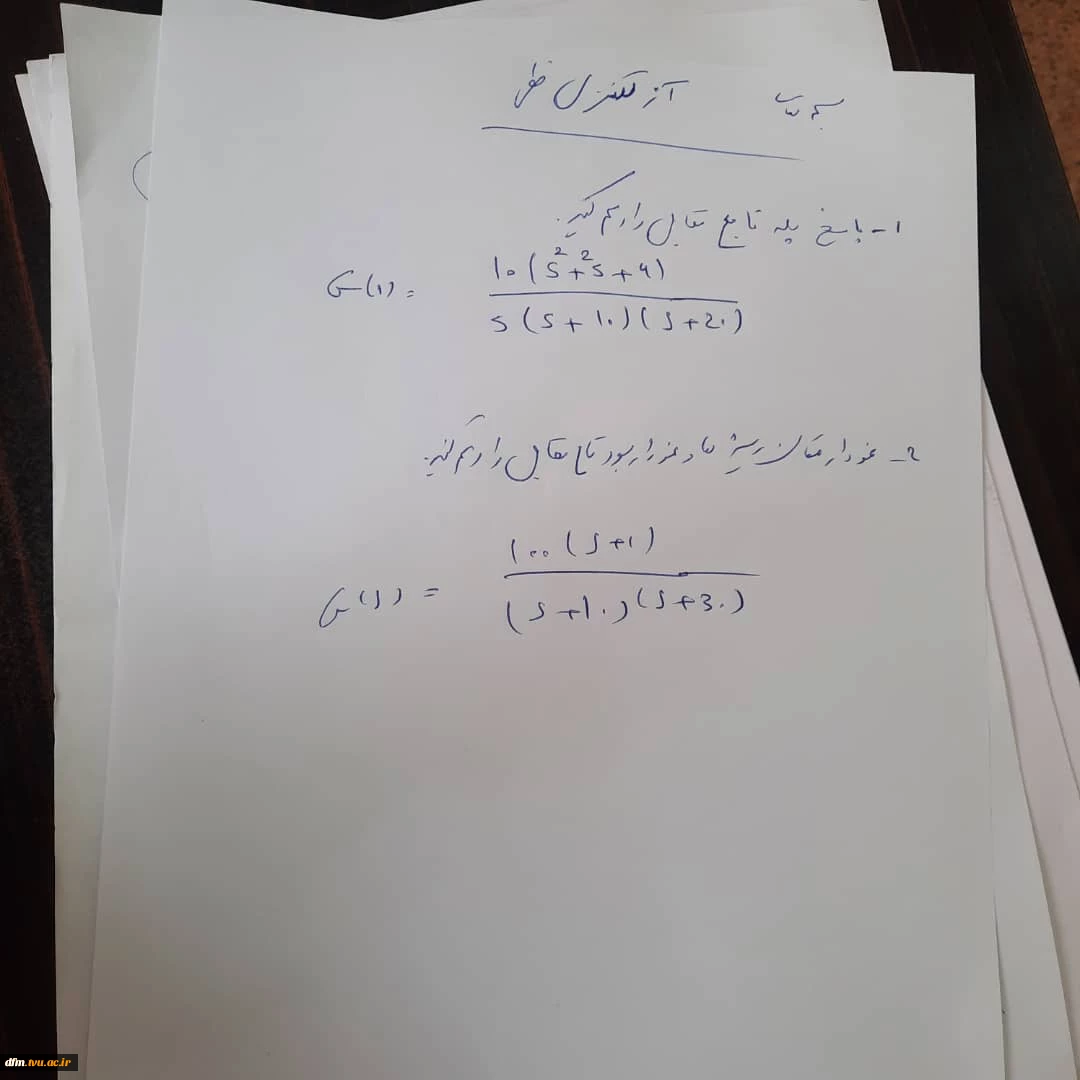 بسم رب آز کنترل خطی
1- پاسخ پله تابع تبدیل را رسم کنید.
G(s) = 10(s² + ²s + 4) / s(s + 10)(s + 20)
2- نمودار مکان ریشه ها و نمودار بود تابع تبدیل را رسم کنید.
G(s) = 100(s + 1) / (s + 10)(s + 30)
dfm.tvu.ac.ir